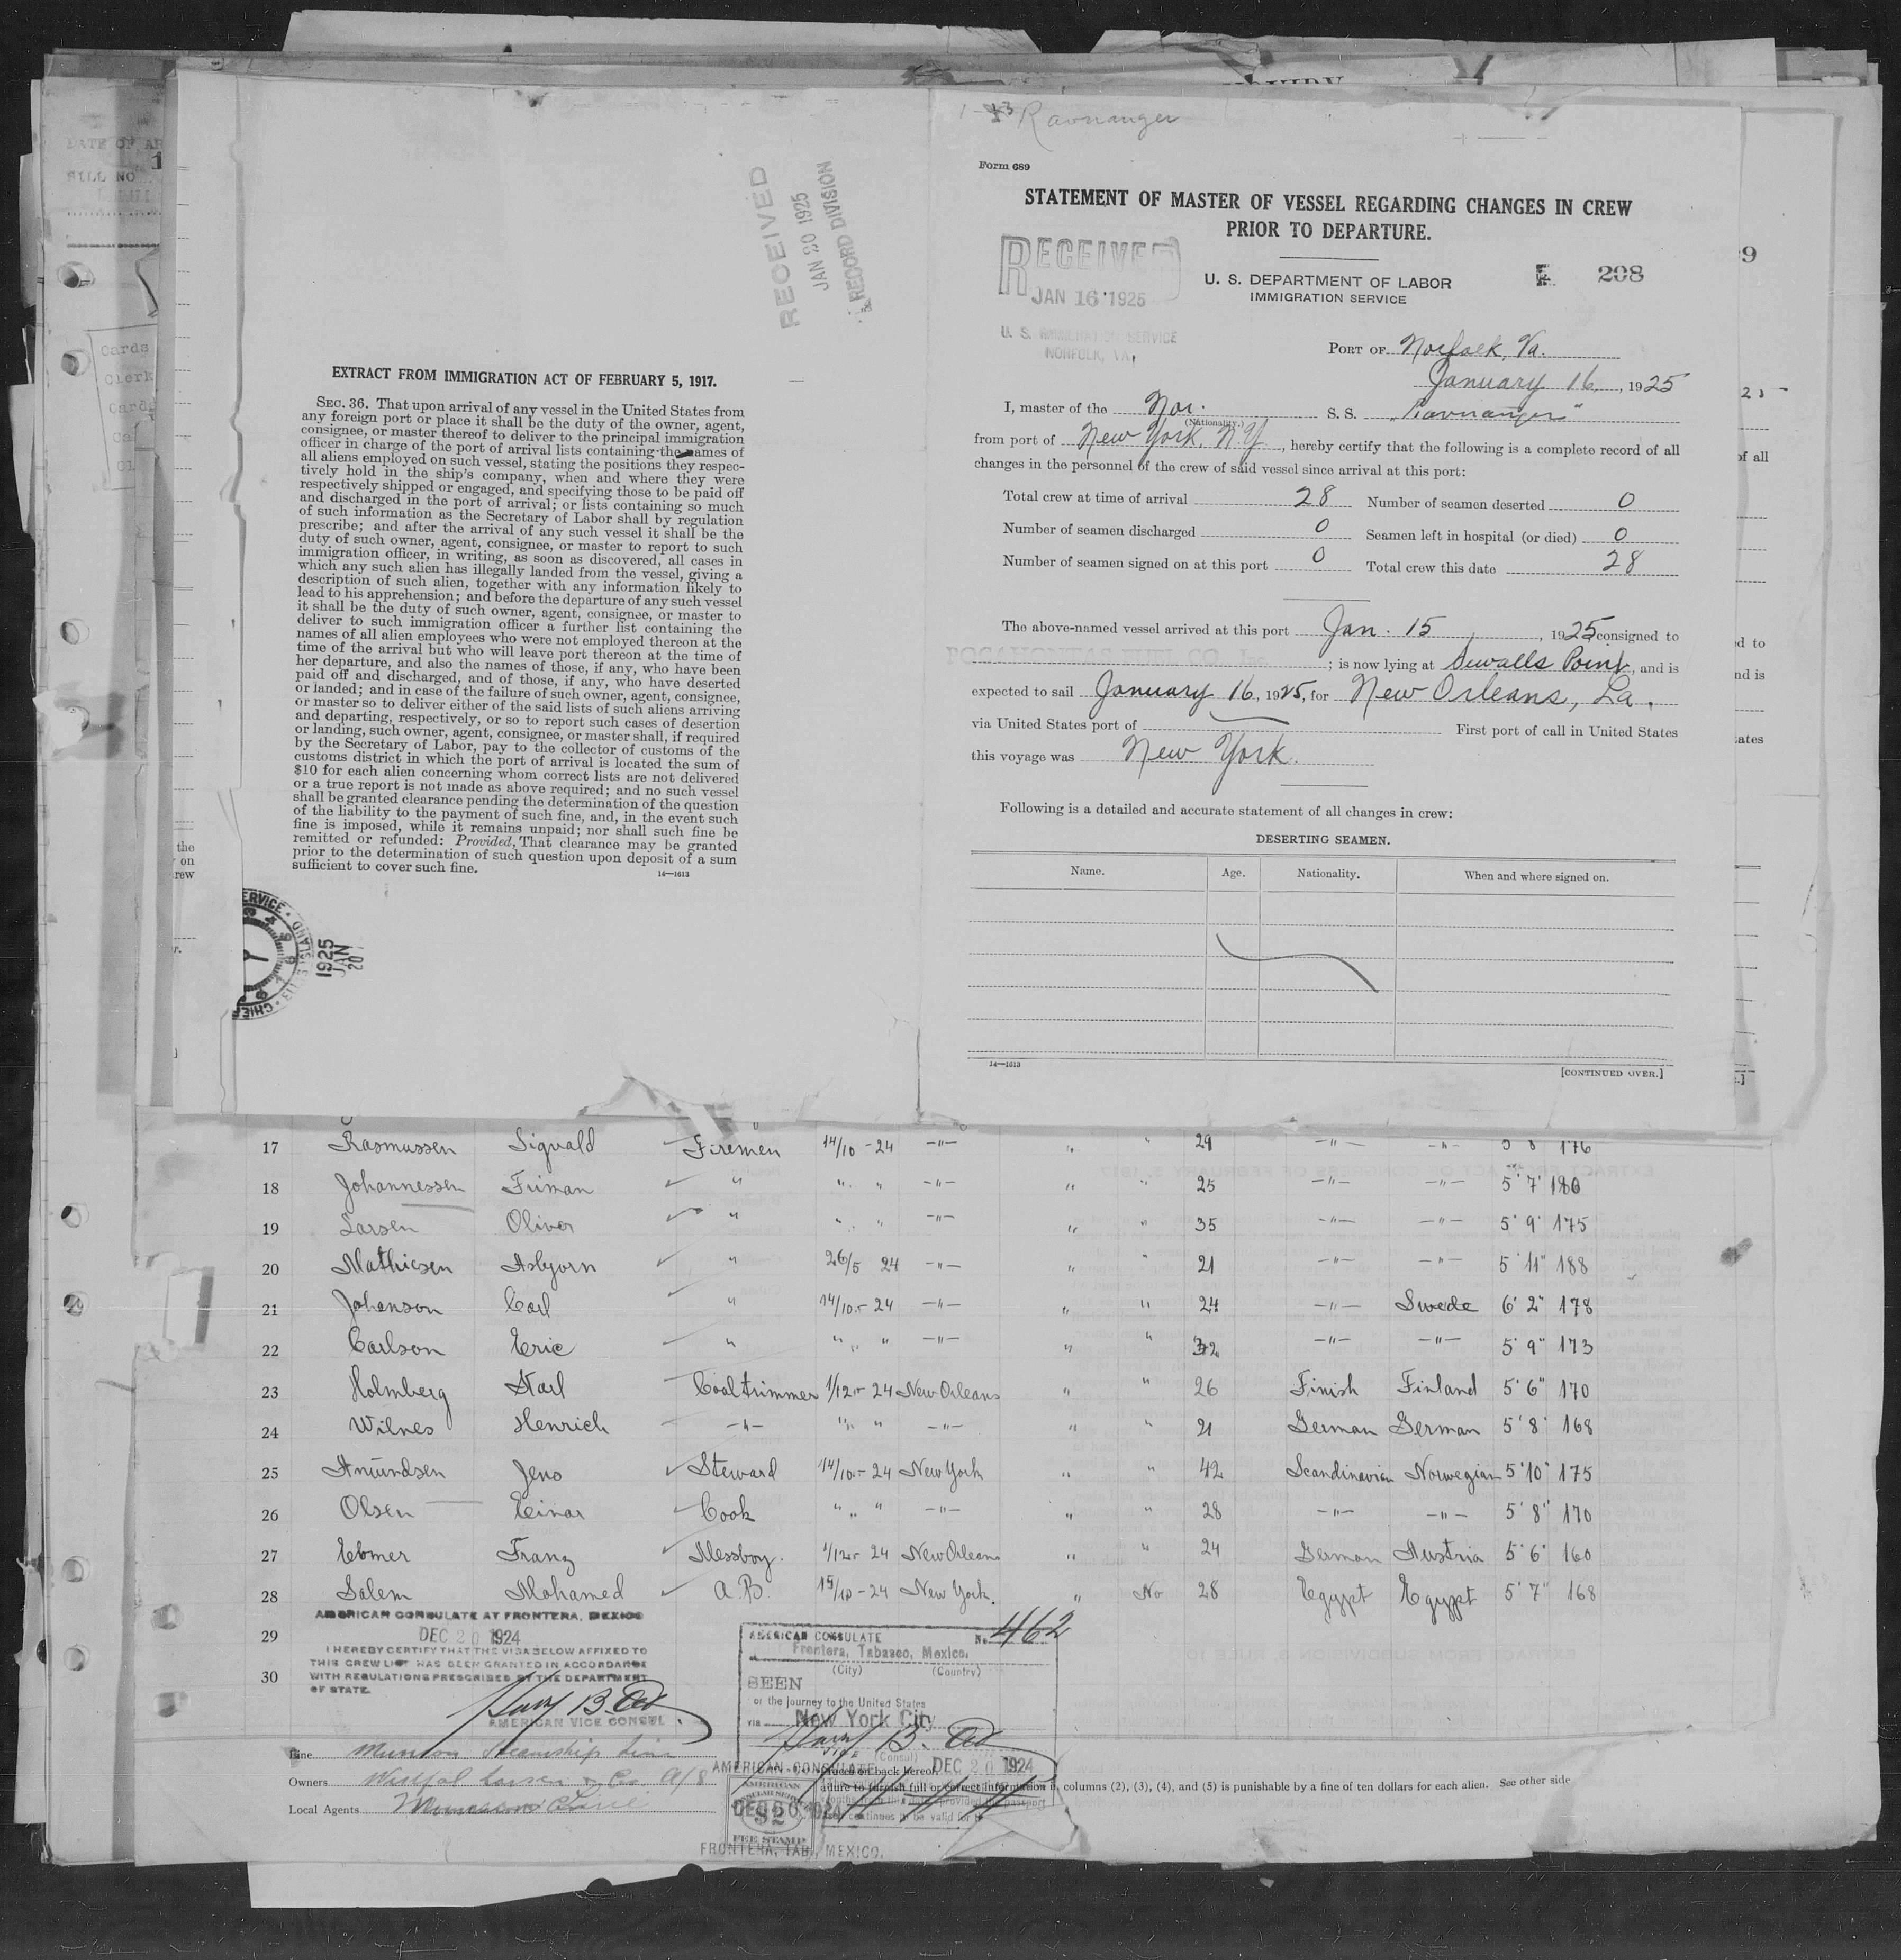 EXTRACT FROM IMMIGRATION ACT OF FEBRUARY 5, 1917.
SEC. 36. That upon arrival of any vessel in the United States from
any foreign port or place it shall be the duty of the owner, agent,
consignee, or master thereof to deliver to the principal immigration
officer in charge of the port of arrival lists containing the names of
all aliens employed on such vessel, stating the positions they respec-
tively hold in the ship's company, when and where they were
respectively shipped or engaged, and specifying those to be paid off
and discharged in the port of arrival; or lists containing so much
of such information as the Secretary of Labor shall by regulation
prescribe; and after the arrival of any such vessel it shall be the
duty of such owner, agent, consignee, or master to report to such
immigration officer, in writing, as soon as discovered, all cases in
which any such alien has illegally landed from the vessel, giving a
description of such alien, together with any information likely to
lead to his apprehension; and before the departure of any such vessel
it shall be the duty of such owner, agent, consignee, or master to
deliver to such immigration officer a further list containing the
names of all alien employees who were not employed thereon at the
time of the arrival but who will leave port thereon at the time of
her departure, and also the names of those, if any, who have been
paid off and discharged, and of those, if any, who have deserted
or landed; and in case of the failure of such owner, agent, consignee,
or master so to deliver either of the said lists of such aliens arriving
and departing, respectively, or so to report such cases of desertion
or landing, such owner, agent, consignee, or master shall, if required
by the Secretary of Labor, pay to the collector of customs of the
customs district in which the port of arrival is located the sum of
$10 for each alien concerning whom correct lists are not delivered
or a true report is not made as above required; and no such vessel
shall be granted clearance pending the determination of the question
of the liability to the payment of such fine, and, in the event such
fine is imposed, while it remains unpaid; nor shall such fine be
remitted or refunded: Provided, That clearance may be granted
prior to the determination of such question upon deposit of a sum
sufficient to cover such fine.
14—1613
RECEIVED
JAN 20 1925
RECORD DIVISION
1925
JAN
20
Ravnanger
Form 689
STATEMENT OF MASTER OF VESSEL REGARDING CHANGES IN CREW
PRIOR TO DEPARTURE.
RECEIVED
JAN 16 1925
U. S. IMMIGRATION SERVICE
NORFOLK, VA.
U. S. DEPARTMENT OF LABOR
IMMIGRATION SERVICE
208
PORT OF Norfolk, Va.
January 16, 1925
I, master of the Nor. S. S. "Ravnanger"
(Nationality.)
from port of New York, N.Y., hereby certify that the following is a complete record of all
changes in the personnel of the crew of said vessel since arrival at this port:
Total crew at time of arrival 28 Number of seamen deserted 0
Number of seamen discharged 0 Seamen left in hospital (or died) 0
Number of seamen signed on at this port 0 Total crew this date 28
The above-named vessel arrived at this port Jan. 15, 1925 consigned to
POCAHONTAS FUEL CO., Inc ; is now lying at Sewalls Point, and is
expected to sail January 16, 1925, for New Orleans, La.
via United States port of First port of call in United States
this voyage was New York.
Following is a detailed and accurate statement of all changes in crew:
DESERTING SEAMEN.
Name. Age. Nationality. When and where signed on.
14—1613
[CONTINUED OVER.]
17 Rasmussen Sigvald Firemen 14/10 - 24 —"— " " 29 —"— —"— 5 8 176
18 Johannessen Friman " " " —"— " " 25 —"— —"— 5' 7' 180
19 Larsen Oliver " " " —"— " " 35 —"— —"— 5' 9' 175
20 Mathiesen Asbjorn " 26/5 24 —"— " " 21 —"— —"— 5' 11" 188
21 Johanson Carl " 14/10 - 24 —"— " " 24 —"— Swede 6' 2" 178
22 Carlson Eric " " " —"— " " 32 —"— —"— 5' 9" 173
23 Holmberg Karl Coaltrimmer 1/12 - 24 New Orleans " " 26 Finish Finland 5' 6" 170
24 Wilnes Henrich —"— " " —"— " " 21 German German 5' 8' 168
25 Amundsen Jens Steward 14/10 - 24 New York " " 42 Scandinavian Norwegian 5' 10" 175
26 Olsen Einar Cook " " —"— " " 28 —"— —"— 5' 8" 170
27 Ebmer Franz Messboy. 1/12 - 24 New Orleans " " 24 German Austria 5' 6' 160
28 Salem Mohamed A.B. 15/10 - 24 New York. " No 28 Egypt Egypt 5' 7" 168
29
30
AMERICAN CONSULATE AT FRONTERA, MEXICO
DEC 20 1924
I HEREBY CERTIFY THAT THE VISA BELOW AFFIXED TO
THIS CREW LIST HAS BEEN GRANTED IN ACCORDANCE
WITH REGULATIONS PRESCRIBED BY THE DEPARTMENT
OF STATE.
AMERICAN VICE CONSUL
AMERICAN CONSULATE No. 462
Frontera, Tabasco, Mexico.
(City) (Country)
SEEN
for the journey to the United States
via New York City
(Consul) DEC 20 1924
AMERICAN CONSULATE
AMERICAN
CONSULAR SERVICE
$2
FEE STAMP
DEC 20 1924
FRONTERA, TAB., MEXICO.
Line Munson Steamship Line
Owners Westfal Larsen & Co A/S
Local Agents Munson Line
failure to furnish full or correct information in columns (2), (3), (4), and (5) is punishable by a fine of ten dollars for each alien. See other side